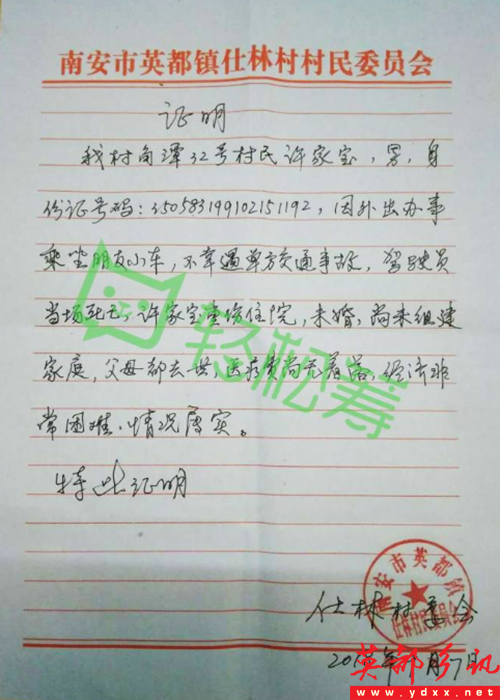 南安市英都镇仕林村村民委员会
证明
我村角潭32号村民许家宝，男，身
份证号码：350583199102151192，因外出办事
乘坐朋友小车，不幸遇单方交通事故，驾驶员
当场死亡，许家宝重伤住院，未婚，尚未组建
家庭，父母都去世，医疗费尚无着落，经济非
常困难，情况属实。
特此证明
轻松筹
南安市英都镇
仕林村村民委员会
仕林村委会
英都
www.ydxx.net